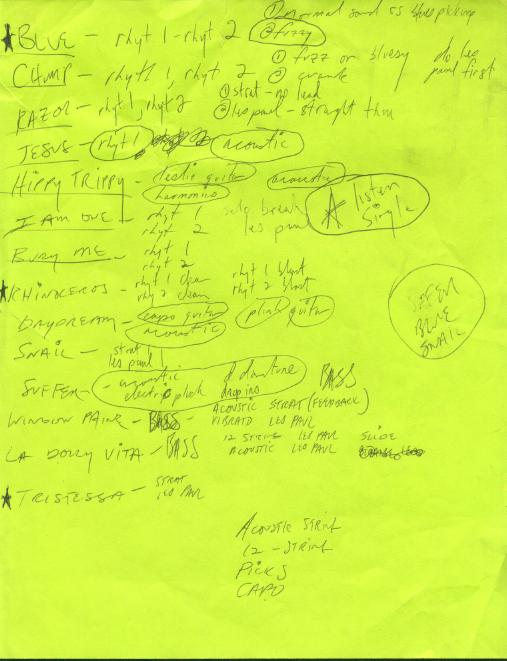 ① normal sand ss blues pickup
★ BLUE - rhyt 1 - rhyt 2 ② fuzzy
CHUMP - rhyt 1, rhyt 2 ① fuzz or bluesy do les
② crunk paul first
RAZOR - rhyt 1, rhyt 2 ① strat - no lead
② les paul - straight thru
JESUS - rhyt 1 acoustic
HIPPY TRIPPY - leslie guitar acoustic
harmonics
★ listen
single
I AM ONE - rhyt 1 solo break
rhyt 2 les paul
BURY ME - rhyt 1
rhyt 2
★ RHINOCEROS - rhyt 1 clean rhyt 1 blast
rhy 2 clean rhyt 2 blast
DAYDREAM - capo guitar plink guitar
acoustic
SUFFER
BLUE
SNAIL
SNAIL - strat 1
les paul 1
SUFFER - acoustic downtune BASS
electric pluck drop ins
WINDOW PAINE - BASS ACOUSTIC STRAT (FEEDBACK)
VIBRATO LES PAUL
LA DOLLY VITA - BASS 12 STRING LES PAUL SLIDE
ACOUSTIC LES PAUL
★ TRISTESSA - STRAT
LES PAUL
ACOUSTIC STRING
12 - STRING
PICKS
CAPO